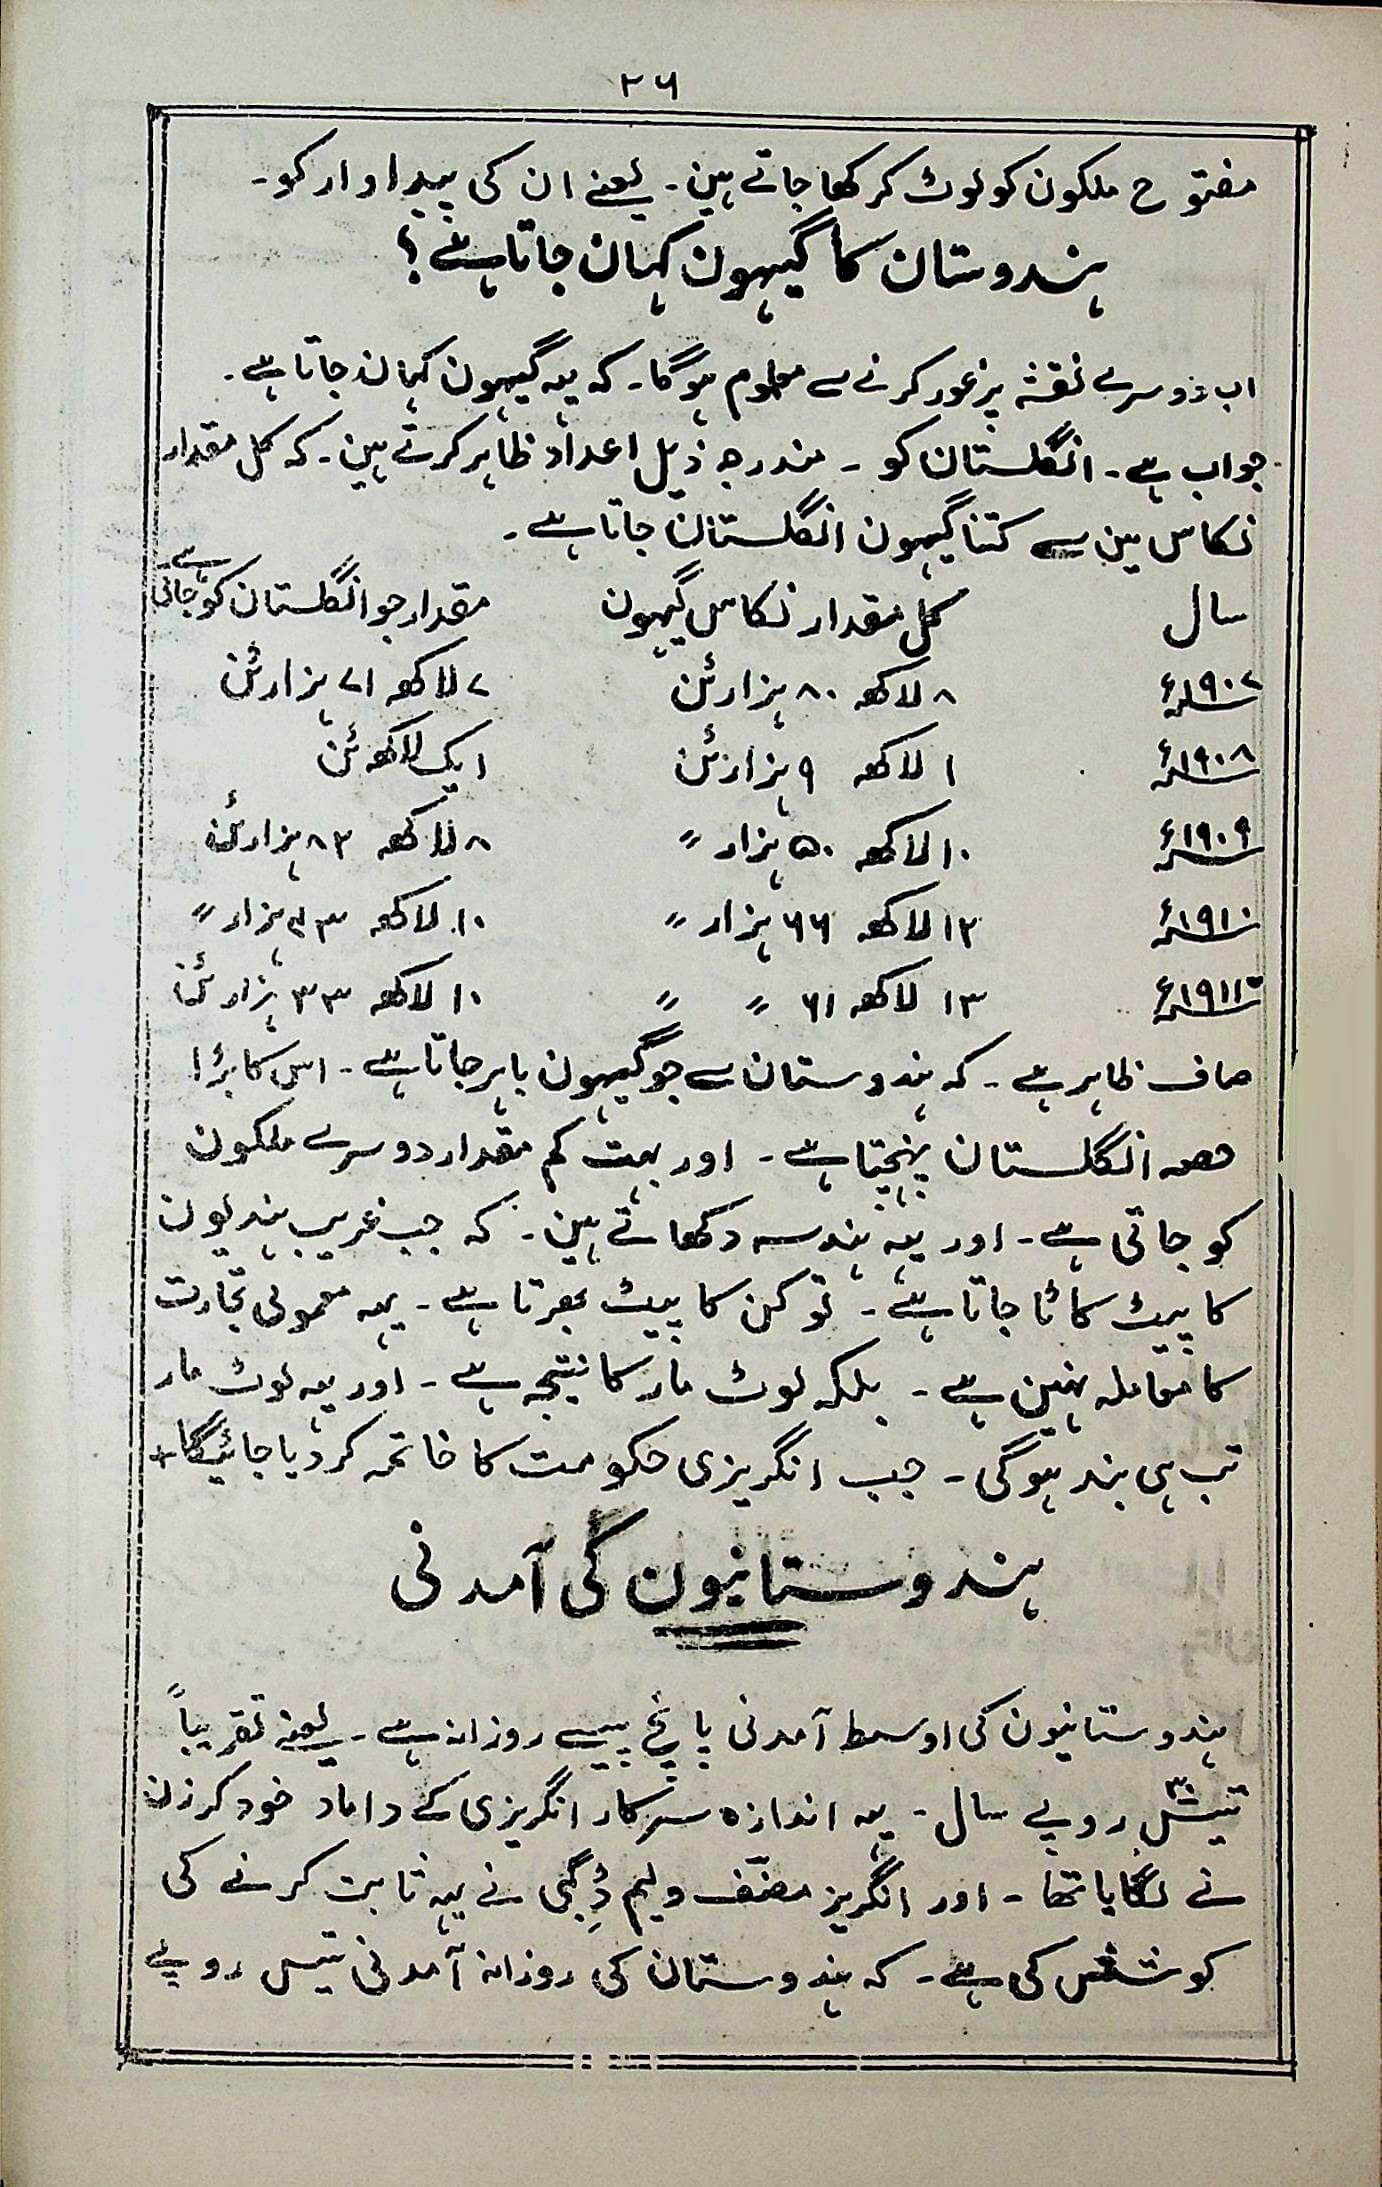 ۲۶
مفتوح ملکون کو لوٹ کر کھا جاتے ہین۔ یعنے ان کی پیداوار کو۔
ہندوستان کا گیہون کہان جاتا ہے؟
اب دوسرے نقشہ پر غور کرنے سے معلوم ہوگا۔ کہ یہہ گیہون کہان جاتا ہے۔
جواب ہے۔ انگلستان کو ۔ مندرجہ ذیل اعداد ظاہر کرتے ہین۔ کہ کل مقدار
نکاس مین سے کتنا گیہون انگلستان جاتا ہے۔
سال کل مقدار نکاس گیہون مقدار جو انگلستان کو جاتی ہے
۱۹۰۷ء ۸ لاکھ ۸۰ ہزار ٹن ۷ لاکھ ۷۱ ہزار ٹن
۱۹۰۸ء ۱ لاکھ ۹ ہزار ٹن ایک لاکھ ٹن
۱۹۰۹ء ۱۰ لاکھ ۵۰ ہزار 〃 ۸ لاکھ ۸۲ ہزار ٹن
۱۹۱۰ء ۱۲ لاکھ ۶۶ ہزار 〃 ۱۰ لاکھ ہزار 〃
۱۹۱۱ء ۱۳ لاکھ ۶۱ 〃 〃 ۱۰ لاکھ ۳۳ ہزار ٹن
صاف ظاہر ہے۔ کہ ہندوستان سے جو گیہون باہر جاتا ہے۔ اس کا بڑا
حصہ انگلستان پہنچتا ہے۔ اور بہت کم مقدار دوسرے ملکون
کو جاتی ہے۔ اور یہہ ہندسہ دکھاتے ہین۔ کہ جب غریب ہندیون
کا پیٹ کاٹا جاتا ہے۔ تو کن کا پیٹ بھرتا ہے۔ یہہ معمولی تجارت
کا معاملہ نہین ہے۔ بلکہ لوٹ مار کا نتیجہ ہے۔ اور یہہ لوٹ مار
تب ہی بند ہوگی۔ جب انگریزی حکومت کا خاتمہ کر دیا جائیگا+
ہندوستانیون کی آمدنی
ہندوستانیون کی اوسط آمدنی پانچ پیسے روزانہ ہے۔ یعنے تقریباً
تیس۳۰ روپے سال۔ یہہ اندازہ سرکار انگریزی کے داماد خود کرزن
نے لگایا تھا۔ اور انگریز مصنّف ولیم ڈِگبی نے یہہ ثابت کرنے کی
کوشش کی ہے۔ کہ ہندوستان کی روزانہ آمدنی تیس روپے